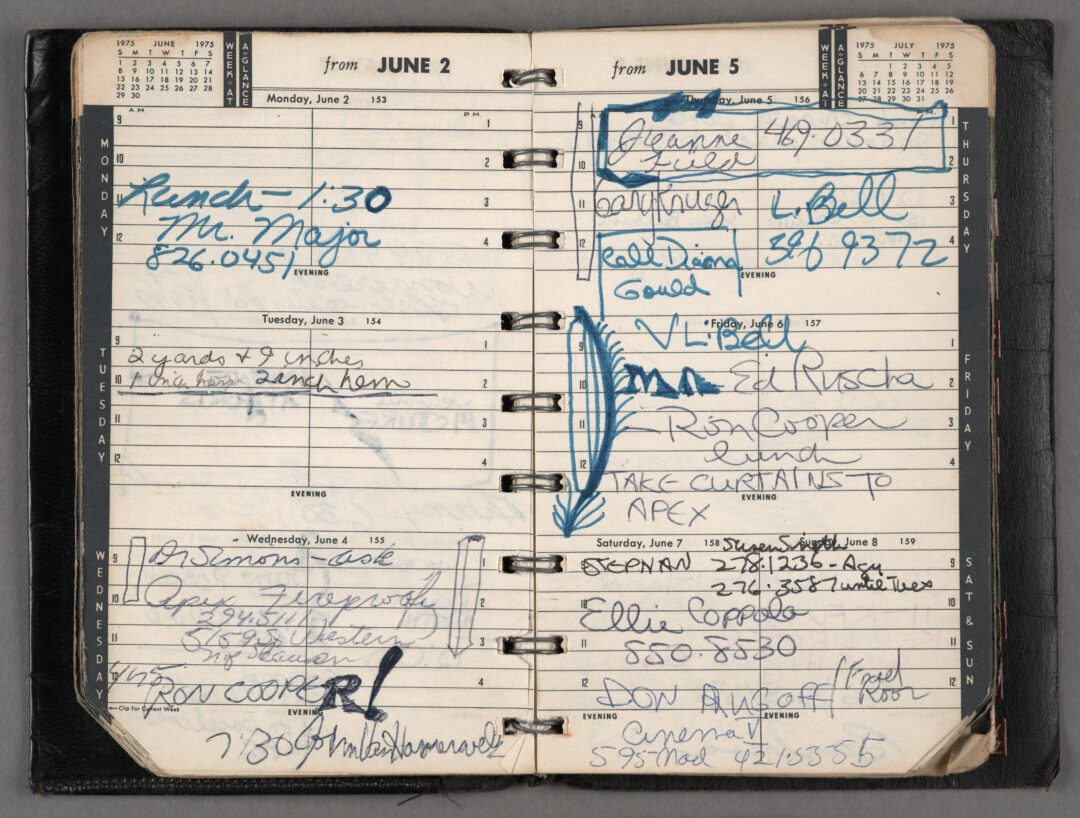 1975 JUNE 1975
S M T W T F S
1 2 3 4 5 6 7
8 9 10 11 12 13 14
15 16 17 18 19 20 21
22 23 24 25 26 27 28
29 30
WEEK·AT
A·GLANCE
from JUNE 2
Monday, June 2 153
A.M.
P.M.
MONDAY
9 1
10 2
11 3
12 4
Lunch - 1:30
Mr. Major
826.0451
EVENING
Tuesday, June 3 154
TUESDAY
9 1
10 2
11 3
12 4
2 yards + 9 inches
1 inch 2 inch hem
EVENING
Wednesday, June 4 155
WEDNESDAY
9 1
10 2
11 3
12 4
Dr Simons - ask
Apex Fireproof
294.5111
Western
RON COOPER!
← Clip for Current Week
EVENING
7:30
from JUNE 5
WEEK·AT
A·GLANCE
1975 JULY 1975
S M T W T F S
1 2 3 4 5
6 7 8 9 10 11 12
13 14 15 16 17 18 19
20 21 22 23 24 25 26
27 28 29 30 31
Thursday, June 5 156
THURSDAY
9 1
10 2
11 3
12 4
Jeanne 469.0331
Field
Gary Kruger L. Bell
Call Diana 396 9372
Gould
EVENING
Friday, June 6 157
FRIDAY
9 1
10 2
11 3
12 4
L. Bell
Ed Ruscha
- Ron Cooper
lunch
TAKE CURTAINS TO
APEX
EVENING
Saturday, June 7 158
Sunday, June 8 159
SAT & SUN
9
10
11
12
STEPHAN 278.1236 -
276.3587 until Tues
Ellie Coppola
550.8530
DON RUGOFF
EVENING
EVENING
Cinema V
595 Mad 421.5555